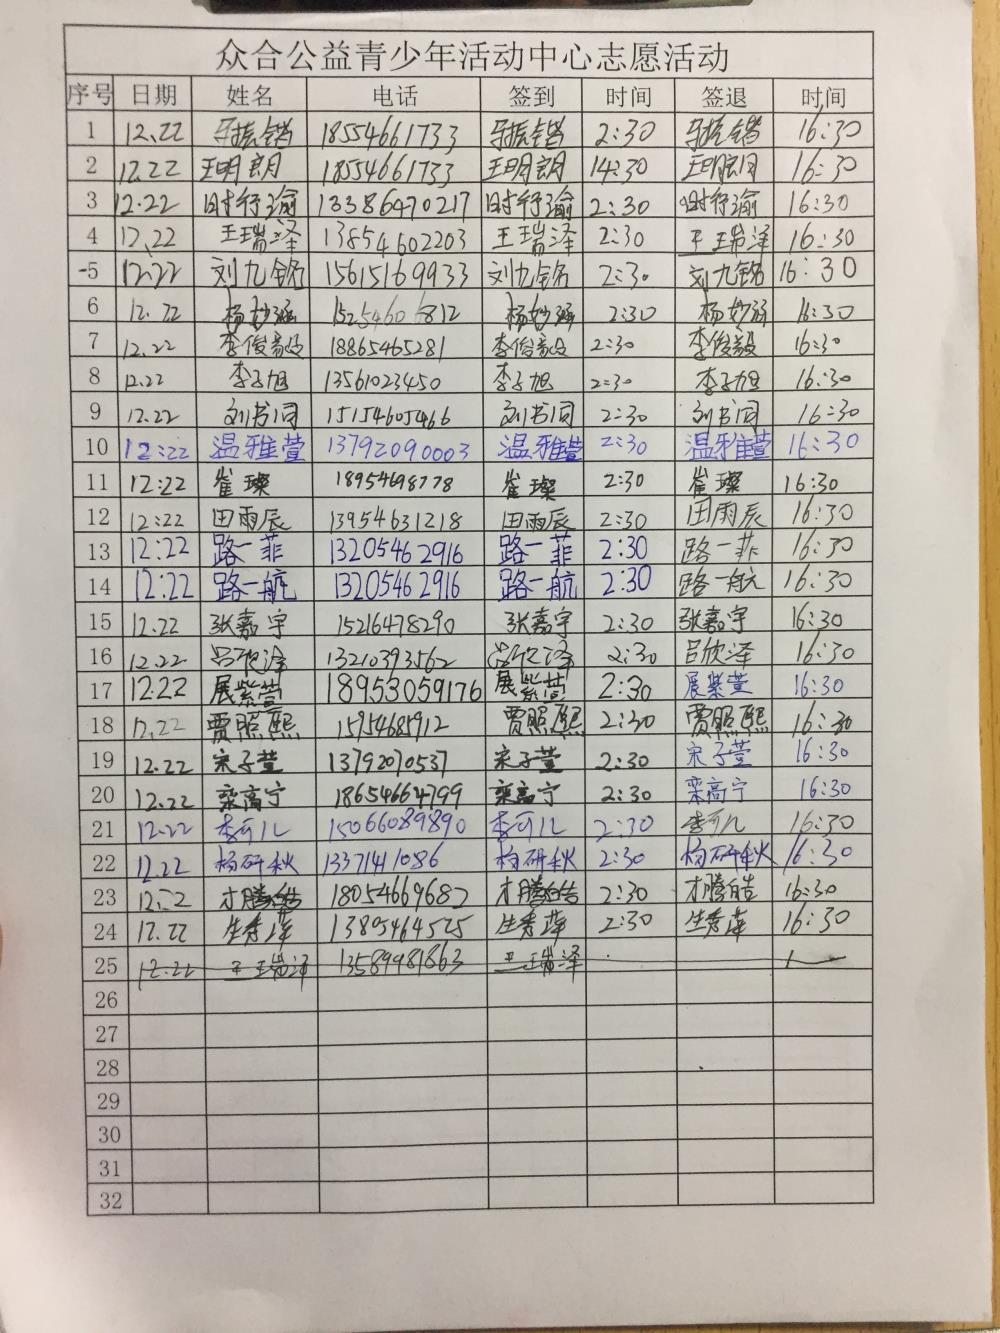 众合公益青少年活动中心志愿活动
序号 日期 姓名 电话 签到 时间 签退 时间
1 12.22 18554661733 2:30 16:30
2 12.22 王明朗 18554661733 王明朗 14:30 王明朗 16:30
3 12:22 时行渝 13386470217 时行渝 2:30 时行渝 16:30
4 12.22 王瑞泽 13854602203 王瑞泽 2:30 王瑞泽 16:30
-5 12.22 刘九铭 15615169933 刘九铭 2:30 刘九铭 16:30
6 12.22 杨妙涵 15254606812 杨妙涵 2:30 杨妙涵 16:30
7 12.22 李俊毅 18865465281 李俊毅 2:30 李俊毅 16:30
8 12.22 李子旭 13561023450 李子旭 2:30 李子旭 16:30
9 12.22 刘书同 15154605466 刘书同 2:30 刘书同 16:30
10 12:22 温雅萱 13792090003 温雅萱 2:30 温雅萱 16:30
11 12:22 崔璨 18954698778 崔璨 2:30 崔璨 16:30
12 12:22 田雨辰 13954631218 田雨辰 2:30 田雨辰 16:30
13 12:22 路一菲 13205462916 路一菲 2:30 路一菲 16:30
14 12:22 路一航 13205462916 路一航 2:30 路一航 16:30
15 12.22 张嘉宇 15216478290 张嘉宇 2:30 张嘉宇 16:30
16 12.22 吕欣泽 13210393562 吕欣泽 2:30 吕欣泽 16:30
17 12.22 展紫萱 18953059176 展紫萱 2:30 展紫萱 16:30
18 12.22 贾照熙 15954685912 贾照熙 2:30 贾照熙 16:30
19 12.22 宋子萱 13792070537 宋子萱 2:30 宋子萱 16:30
20 12.22 栾高宁 18654664799 栾高宁 2:30 栾高宁 16:30
21 12.22 李可儿 15066089890 李可儿 2:30 李可儿 16:30
22 12.22 杨研秋 13371411086 杨研秋 2:30 杨研秋 16:30
23 12.22 才腾皓 18054669682 才腾皓 2:30 才腾皓 16:30
24 12.22 生秀萍 13805464525 生秀萍 2:30 生秀萍 16:30
25 12.22 王瑞泽 13589981863 王瑞泽
26
27
28
29
30
31
32